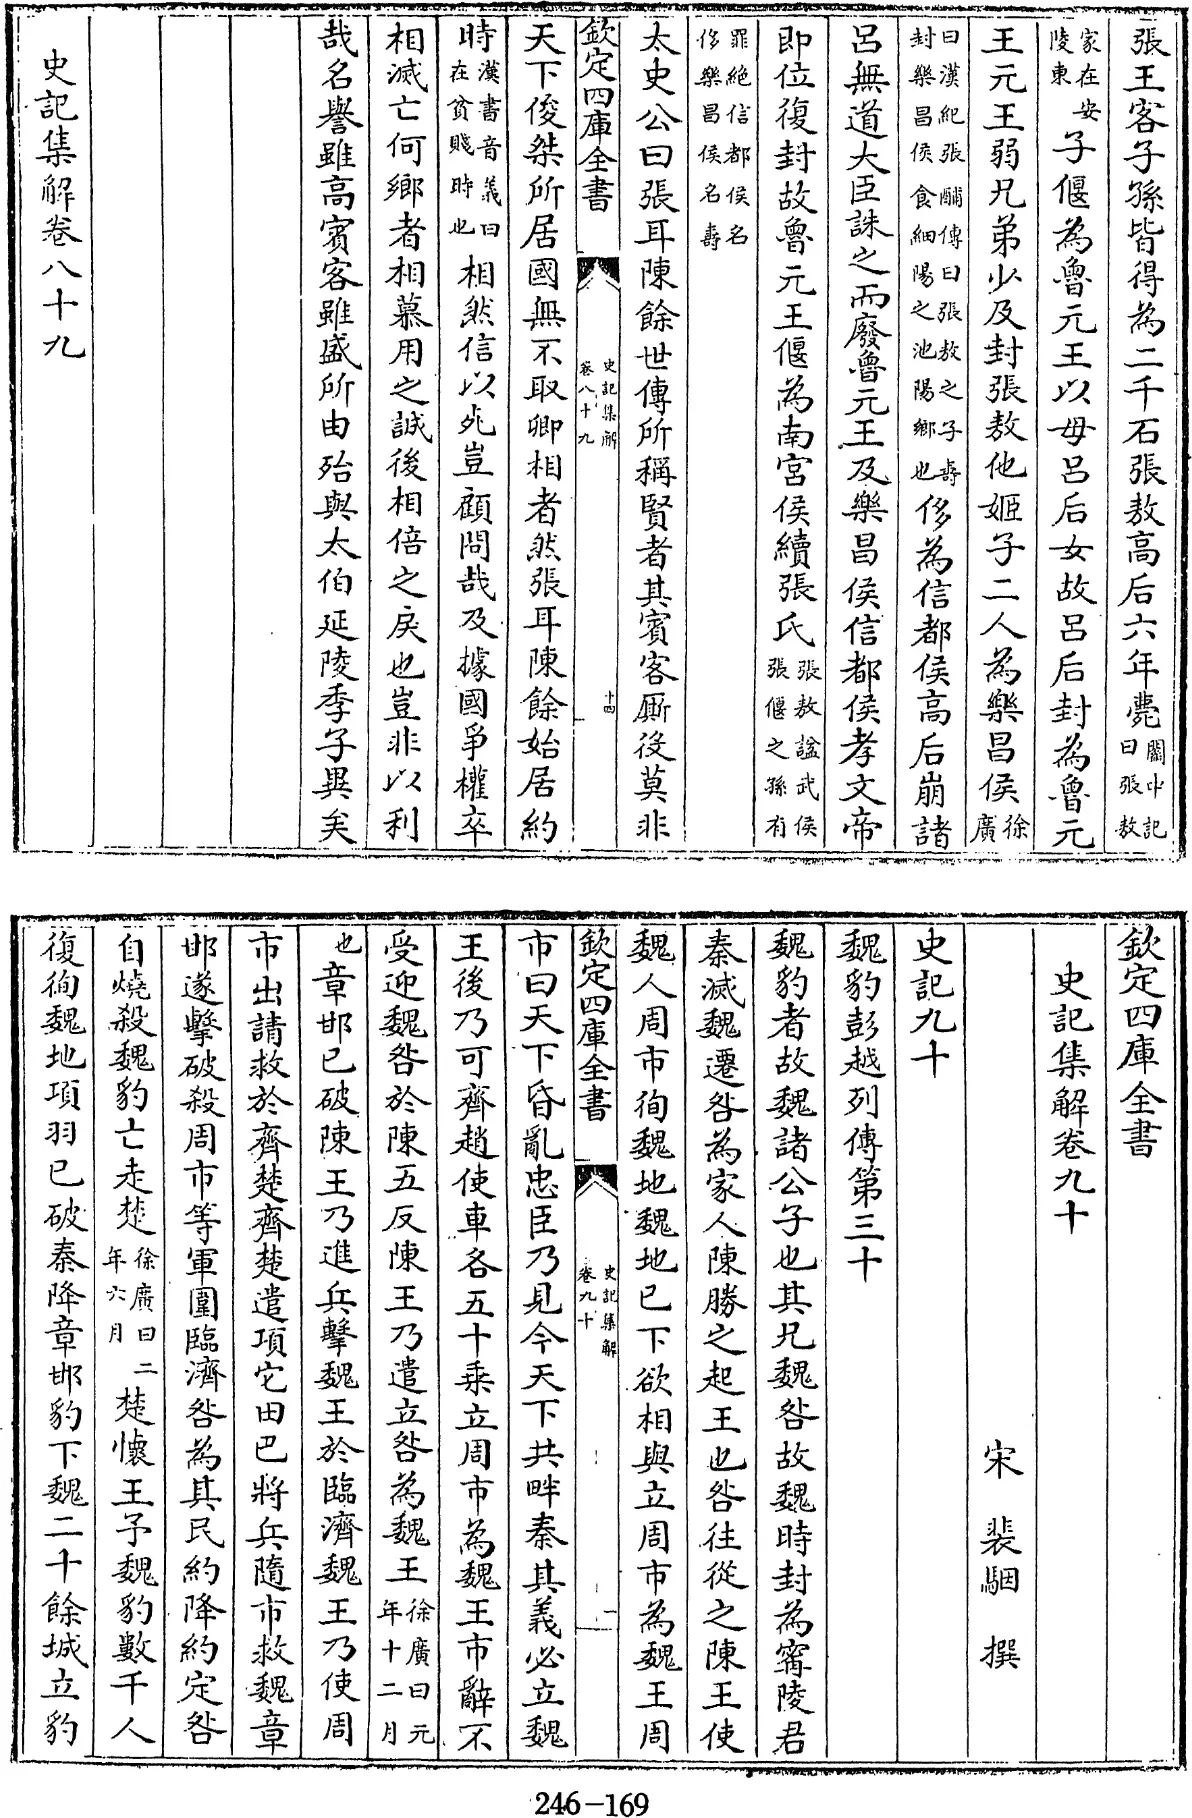 張王客子孫皆得為二千石張敖高后六年薨關中記曰張敖
冢在安陵東子偃為魯元王以母呂后女故呂后封為魯元
王元王弱兄弟少及封張敖他姬子二人為樂昌侯徐廣
曰漢紀張酺傳曰張敖之子壽封樂昌侯食細陽之池陽鄉也侈為信都侯高后崩諸
呂無道大臣誅之而廢魯元王及樂昌侯信都侯孝文帝
即位復封故魯元王偃為南宮侯續張氏張敖諡武侯張偃之孫有
罪絕信都侯名侈樂昌侯名壽
太史公曰張耳陳餘世傳所稱賢者其賓客厮役莫非
欽定四庫全書 史記集解卷八十九 十四
天下俊桀所居國無不取卿相者然張耳陳餘始居約
時漢書音義曰在貧賤時也相然信以死豈顧問哉及據國爭權卒
相滅亡何鄉者相慕用之誠後相倍之戾也豈非以利
哉名譽雖高賓客雖盛所由殆與太伯延陵季子異矣
史記集解卷八十九
欽定四庫全書
史記集解卷九十
宋 裴駰 撰
史記九十
魏豹彭越列傳第三十
魏豹者故魏諸公子也其兄魏咎故魏時封為甯陵君
秦滅魏遷咎為家人陳勝之起王也咎往從之陳王使
魏人周市徇魏地魏地已下欲相與立周市為魏王周
欽定四庫全書 史記集解卷九十 一
市曰天下昏亂忠臣乃見今天下共畔秦其義必立魏
王後乃可齊趙使車各五十乘立周市為魏王市辭不
受迎魏咎於陳五反陳王乃遣立咎為魏王徐廣曰元年十二月
也章邯已破陳王乃進兵擊魏王於臨濟魏王乃使周
市出請救於齊楚齊楚遣項它田巴將兵隨市救魏章
邯遂擊破殺周市等軍圍臨濟咎為其民約降約定咎
自燒殺魏豹亡走楚徐廣曰二年六月楚懷王予魏豹數千人
復徇魏地項羽已破秦降章邯豹下魏二十餘城立豹
246-169